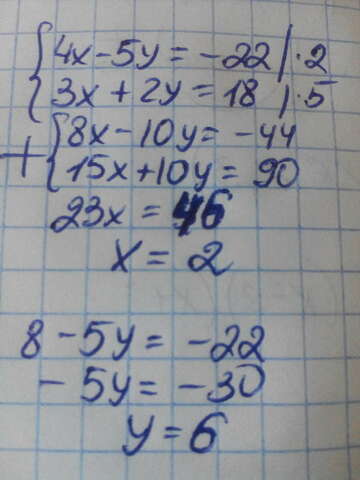 4x-5y=-22/·2
3x+2y=18/·5
+
8x-10y=-44
15x+10y=90
23x=46
x=2
8-5y=-22
-5y=-30
y=6